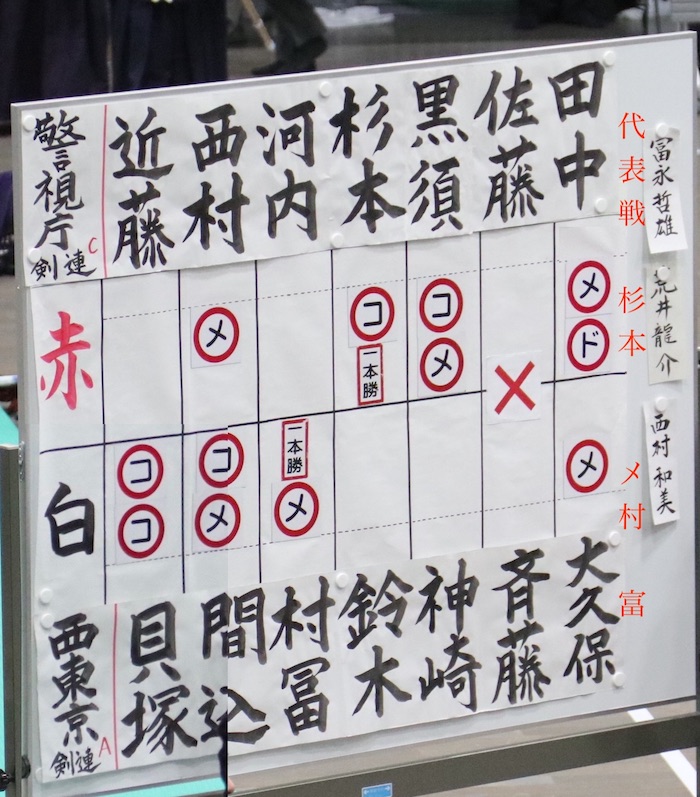 警視庁
剣連C
近藤
西村
河内
杉本
黒須
佐藤
田中
赤
メ
コ
一本勝
コ
メ
メ
ド
白
コ
コ
コ
メ
一本勝
メ
メ
西東京
剣連A
貝塚
間込
村冨
鈴木
神崎
斉藤
大久保
代表戦
杉本
メ村
富
冨永哲雄
荒井龍介
西村和美